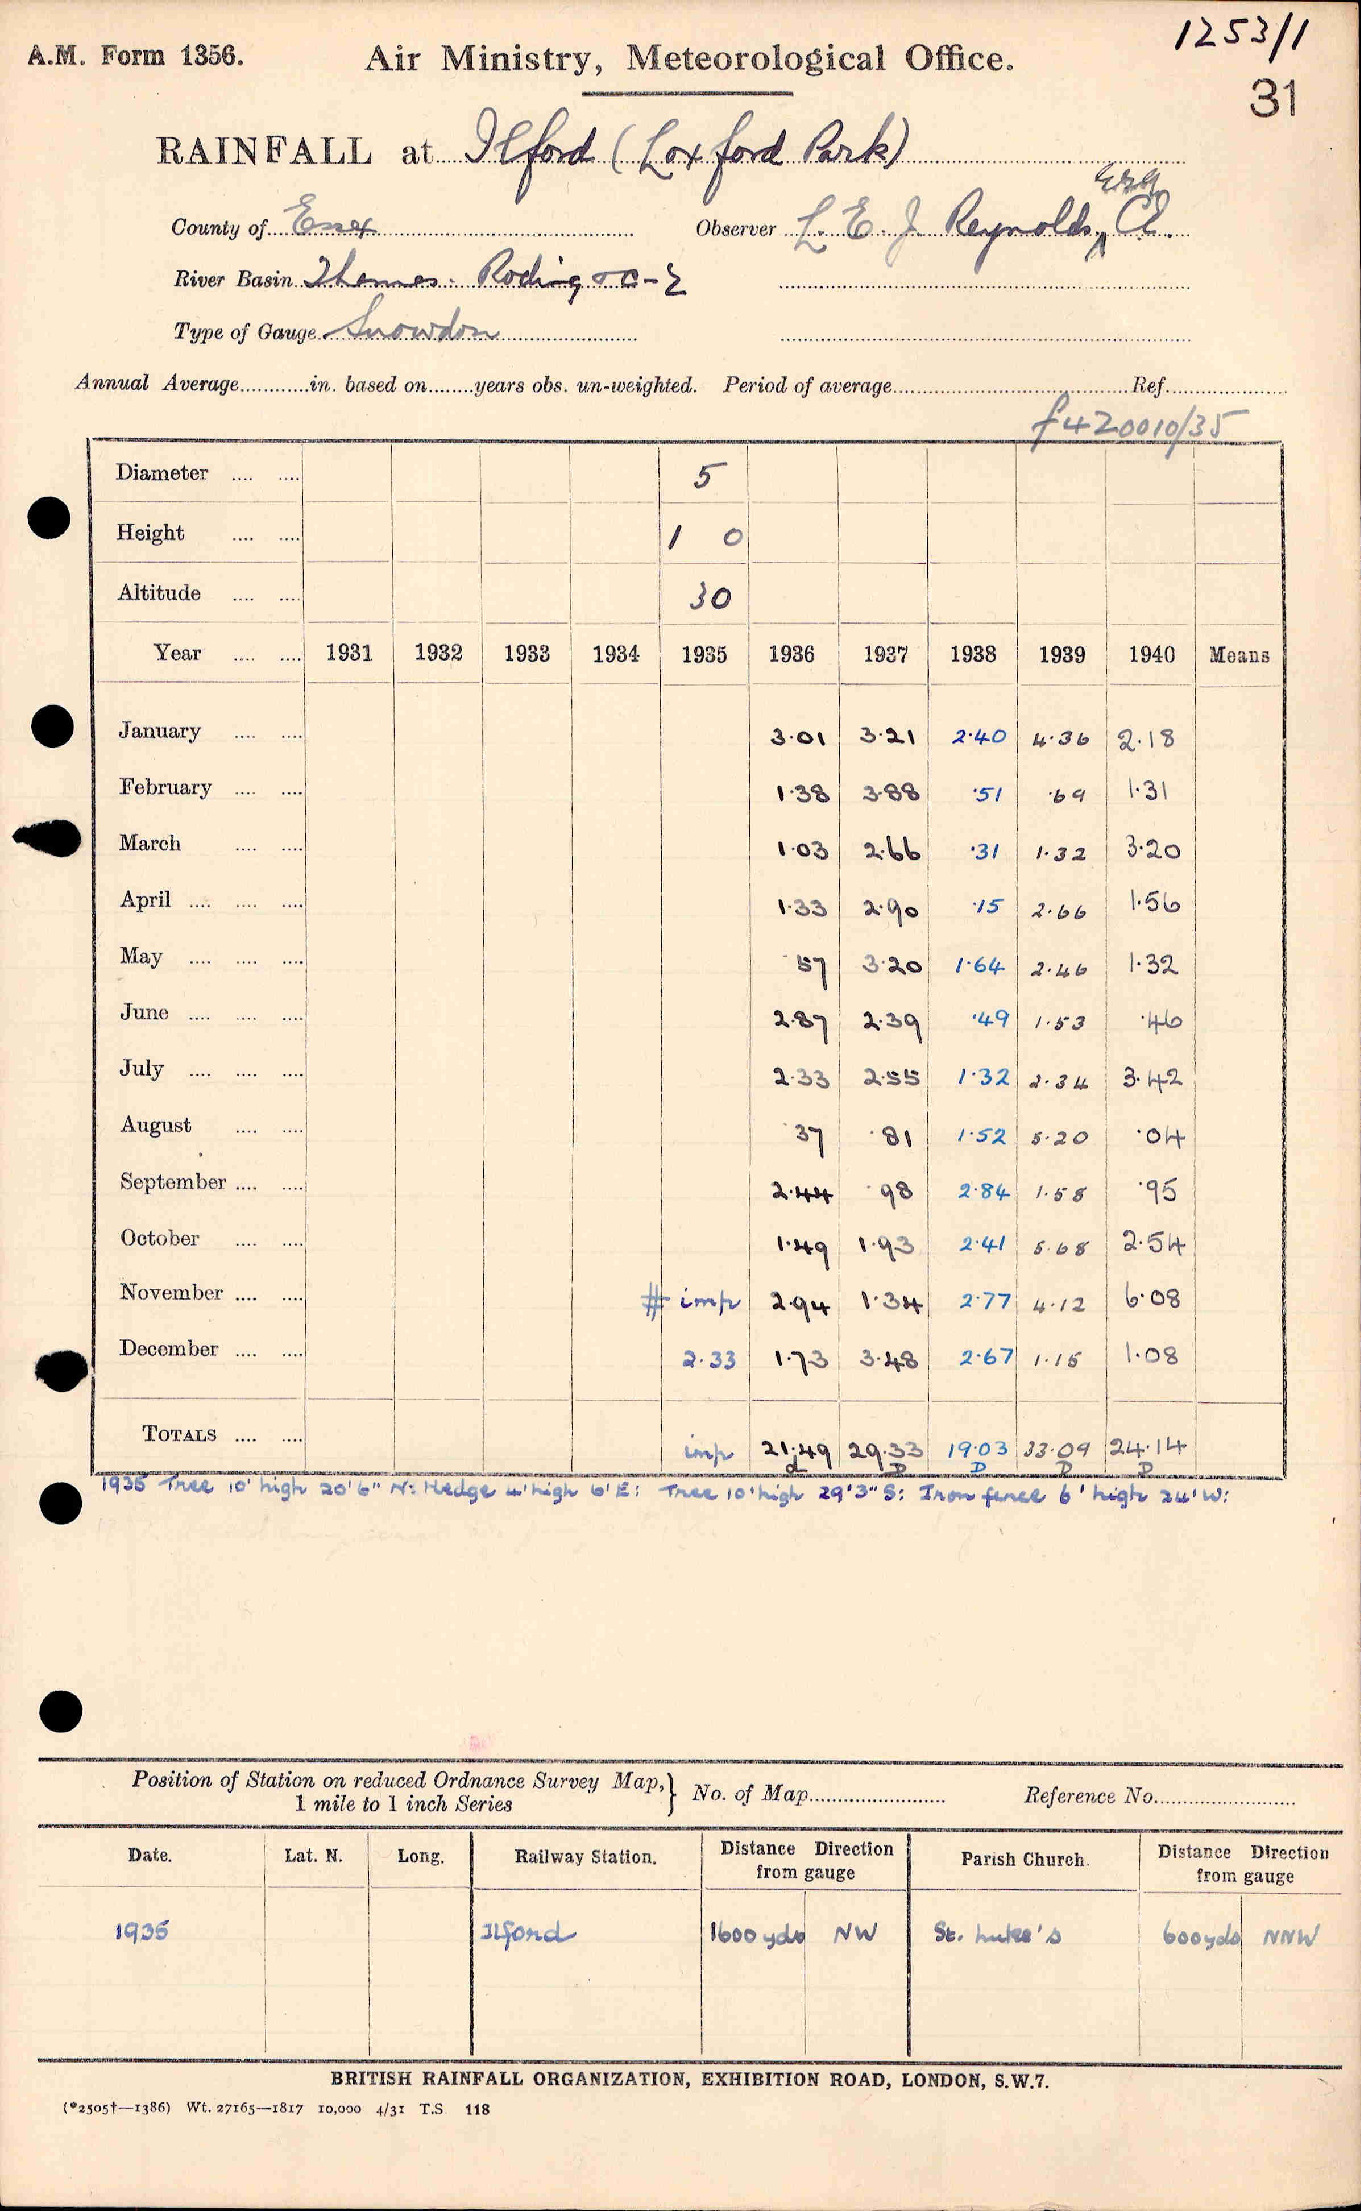 1253/1
A.M. Form 1356. Air Ministry, Meteorological Office.
31
RAINFALL at Ilford (Loxford Park)
County of Essex Observer L. E. J. Reynolds, Esq. CE.
River Basin Thames. Roding
Type of Gauge Snowdon
Annual Average in. based on years obs. un-weighted. Period of average Ref.
f420010/35
Diameter 5
Height 1 0
Altitude 30
Year 1931 1932 1933 1934 1935 1936 1937 1938 1939 1940 Means
January 3·01 3·21 2·40 4·36 2·18
February 1·38 3·88 ·51 ·69 1·31
March 1·03 2·66 ·31 1·32 3·20
April 1·33 2·90 ·15 2·66 1·56
May ·57 3·20 1·64 2·46 1·32
June 2·87 2·39 ·49 1·53 ·46
July 2·33 2·55 1·32 2·34 3·42
August ·37 ·81 1·52 5·20 ·04
September 2·44 ·98 2·84 1·58 ·95
October 1·49 1·93 2·41 5·68 2·54
November # imp 2·94 1·34 2·77 4·12 6·08
December 2·33 1·73 3·48 2·67 1·15 1·08
TOTALS imp 21·49 29·33 19·03 33·09 24·14
D D D D
1935 Tree 10' high 20'6" N: Hedge 4' high 6' E: Tree 10' high 29'3" S: Iron fence 6' high 24' W:
Position of Station on reduced Ordnance Survey Map, } No. of Map Reference No.
1 mile to 1 inch Series
Date. Lat. N. Long. Railway Station. Distance Direction from gauge Parish Church. Distance Direction from gauge
1935 Ilford 1600 yds NW St. Luke's 600 yds NNW
BRITISH RAINFALL ORGANIZATION, EXHIBITION ROAD, LONDON, S.W.7.
(*2505†—1386) Wt. 27165—1817 10,000 4/31 T.S 118